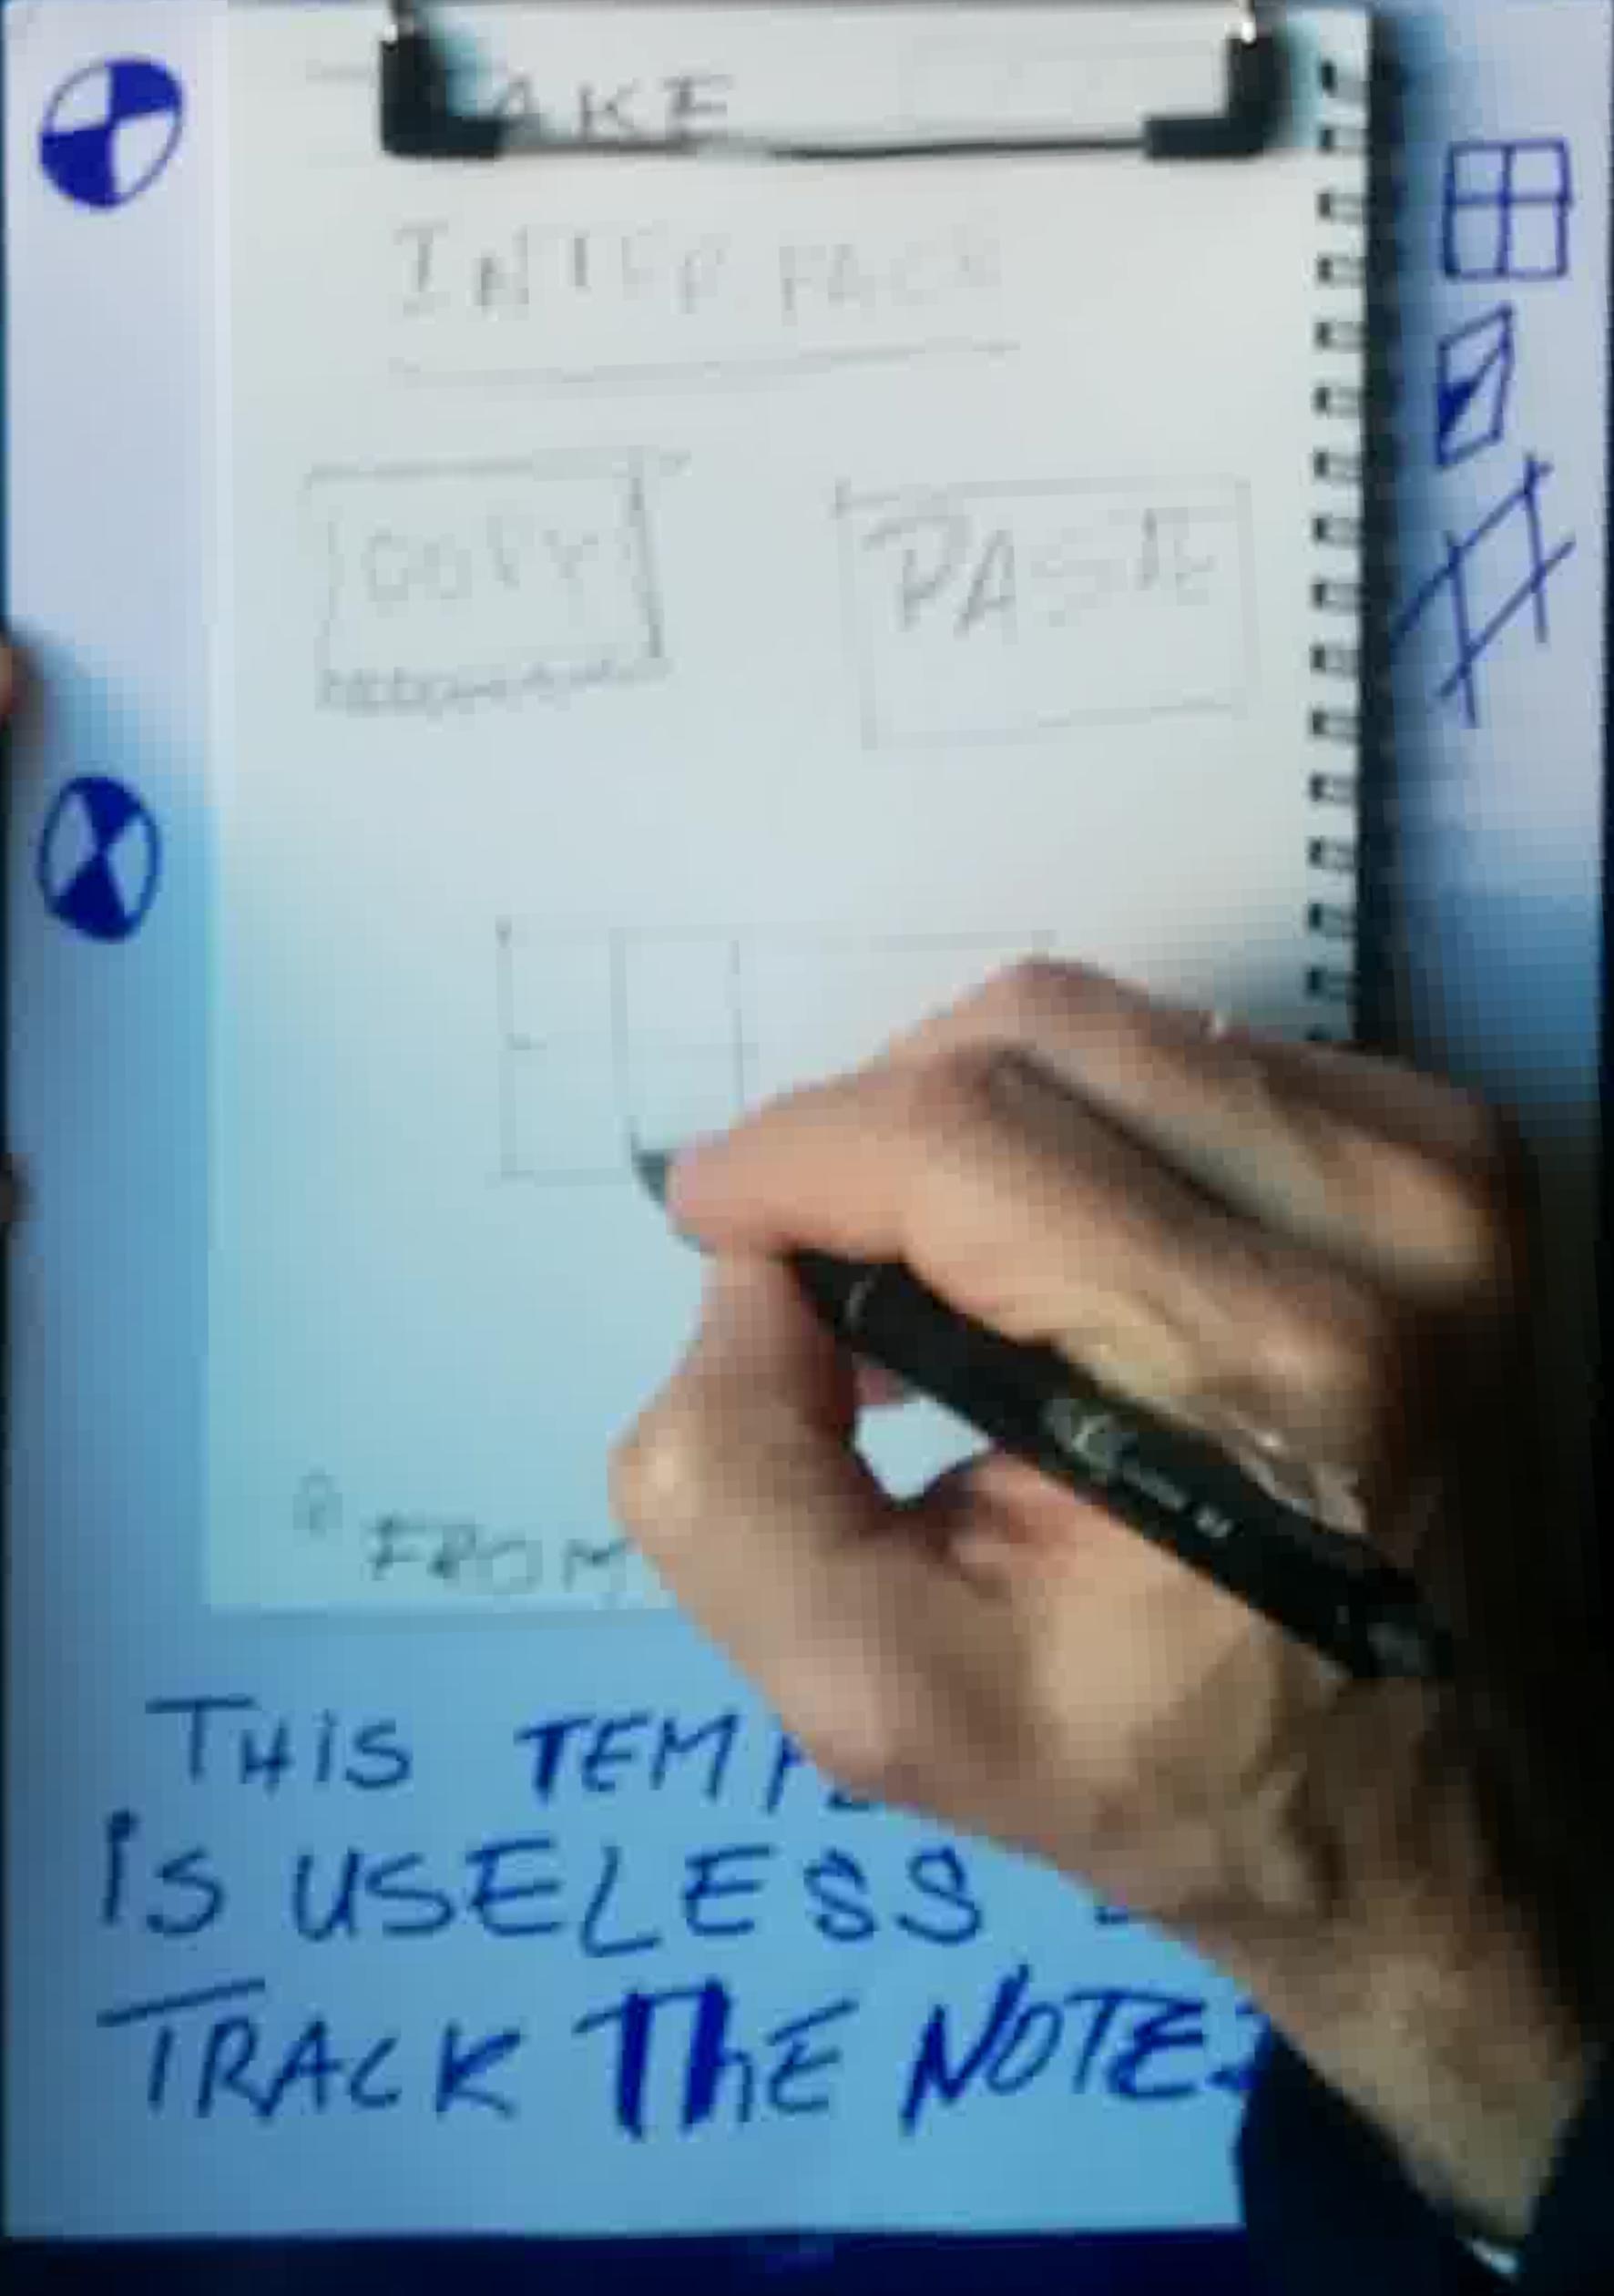 AKE
INTERFACE
COPY PASTE
FROM
THiS TEMPL
iS USELESS
TRACK ThE NOTES